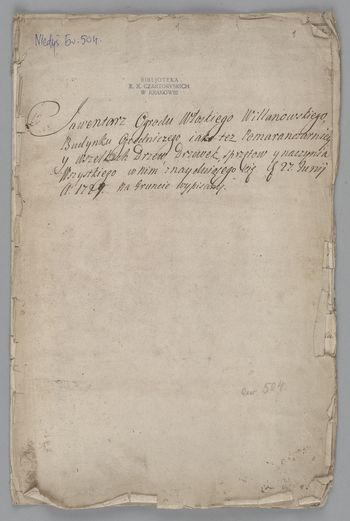 Niegdyś Ew. 504.
BIBLJOTEKA
X. X. CZARTORYSKICH
W KRAKOWIE
Inwentarz Ogrodu Włoskiego Willanowskiego,
Budynku Ogrodniczego iako też Pomaranczarniey
y Wszelkich Drzew, Drzewek, sprzętow y naczynia
Wszystkiego w nim znayduiącego się 27. Junij
A 1729 na Gruncie wypisany.
Ew 504.